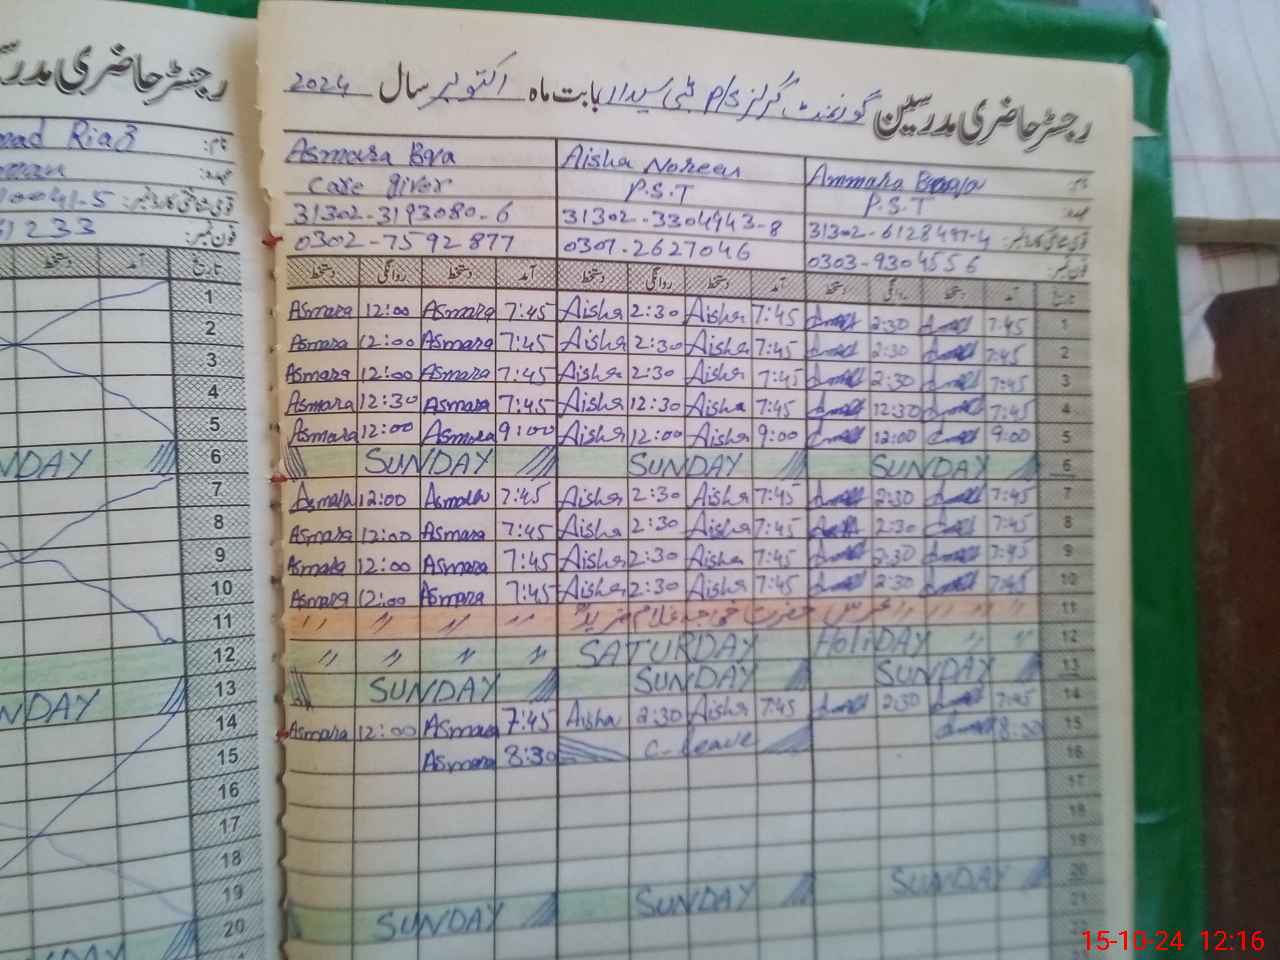 رجسٹر حاضری مدرسین گورنمنٹ گرلز P/S بابت ماہ اکتوبر سال 2024
Asmara Bva Aisha Noreen Ammara نام:
Care giver P.S.T P.S.T عہدہ:
31302-3193080-6 31302-3304943-8 31302-6128497-4 قومی شناختی کارڈ نمبر:
0302-7592877 0307-2627046 0303-9304556 فون نمبر:
دستخط روانگی دستخط آمد دستخط روانگی دستخط آمد دستخط روانگی دستخط آمد تاریخ
Asmara 12:00 Asmara 7:45 Aisha 2:30 Aisha 7:45 2:30 7:45 1
Asmara 12:00 Asmara 7:45 Aisha 2:30 Aisha 7:45 2:30 7:45 2
Asmara 12:00 Asmara 7:45 Aisha 2:30 Aisha 7:45 2:30 7:45 3
Asmara 12:30 Asmara 7:45 Aisha 12:30 Aisha 7:45 12:30 7:45 4
Asmara 12:00 Asmara 9:00 Aisha 12:00 Aisha 9:00 12:00 9:00 5
SUNDAY SUNDAY SUNDAY 6
Asmara 12:00 Asmara 7:45 Aisha 2:30 Aisha 7:45 2:30 7:45 7
Asmara 12:00 Asmara 7:45 Aisha 2:30 Aisha 7:45 2:30 7:45 8
Asmara 12:00 Asmara 7:45 Aisha 2:30 Aisha 7:45 2:30 7:45 9
Asmara 12:00 Asmara 7:45 Aisha 2:30 Aisha 7:45 2:30 7:45 10
" " " " عرس حضرت خواجہ غلام فرید " " " " 11
" " " " SATURDAY HOLIDAY " " 12
SUNDAY SUNDAY SUNDAY 13
Asmara 12:00 Asmara 7:45 Aisha 2:30 Aisha 7:45 2:30 7:45 14
Asmara 8:30 C-leave 8:00 15
16
17
18
19
SUNDAY SUNDAY SUNDAY 20
21
رجسٹر حاضری
Riaz نام:
عہدہ:
قومی شناختی کارڈ نمبر:
1233 فون نمبر:
دستخط آمد تاریخ
1
2
3
4
5
NDAY 6
7
8
9
10
11
12
NDAY 13
14
15
16
17
18
19
20
15-10-24 12:16